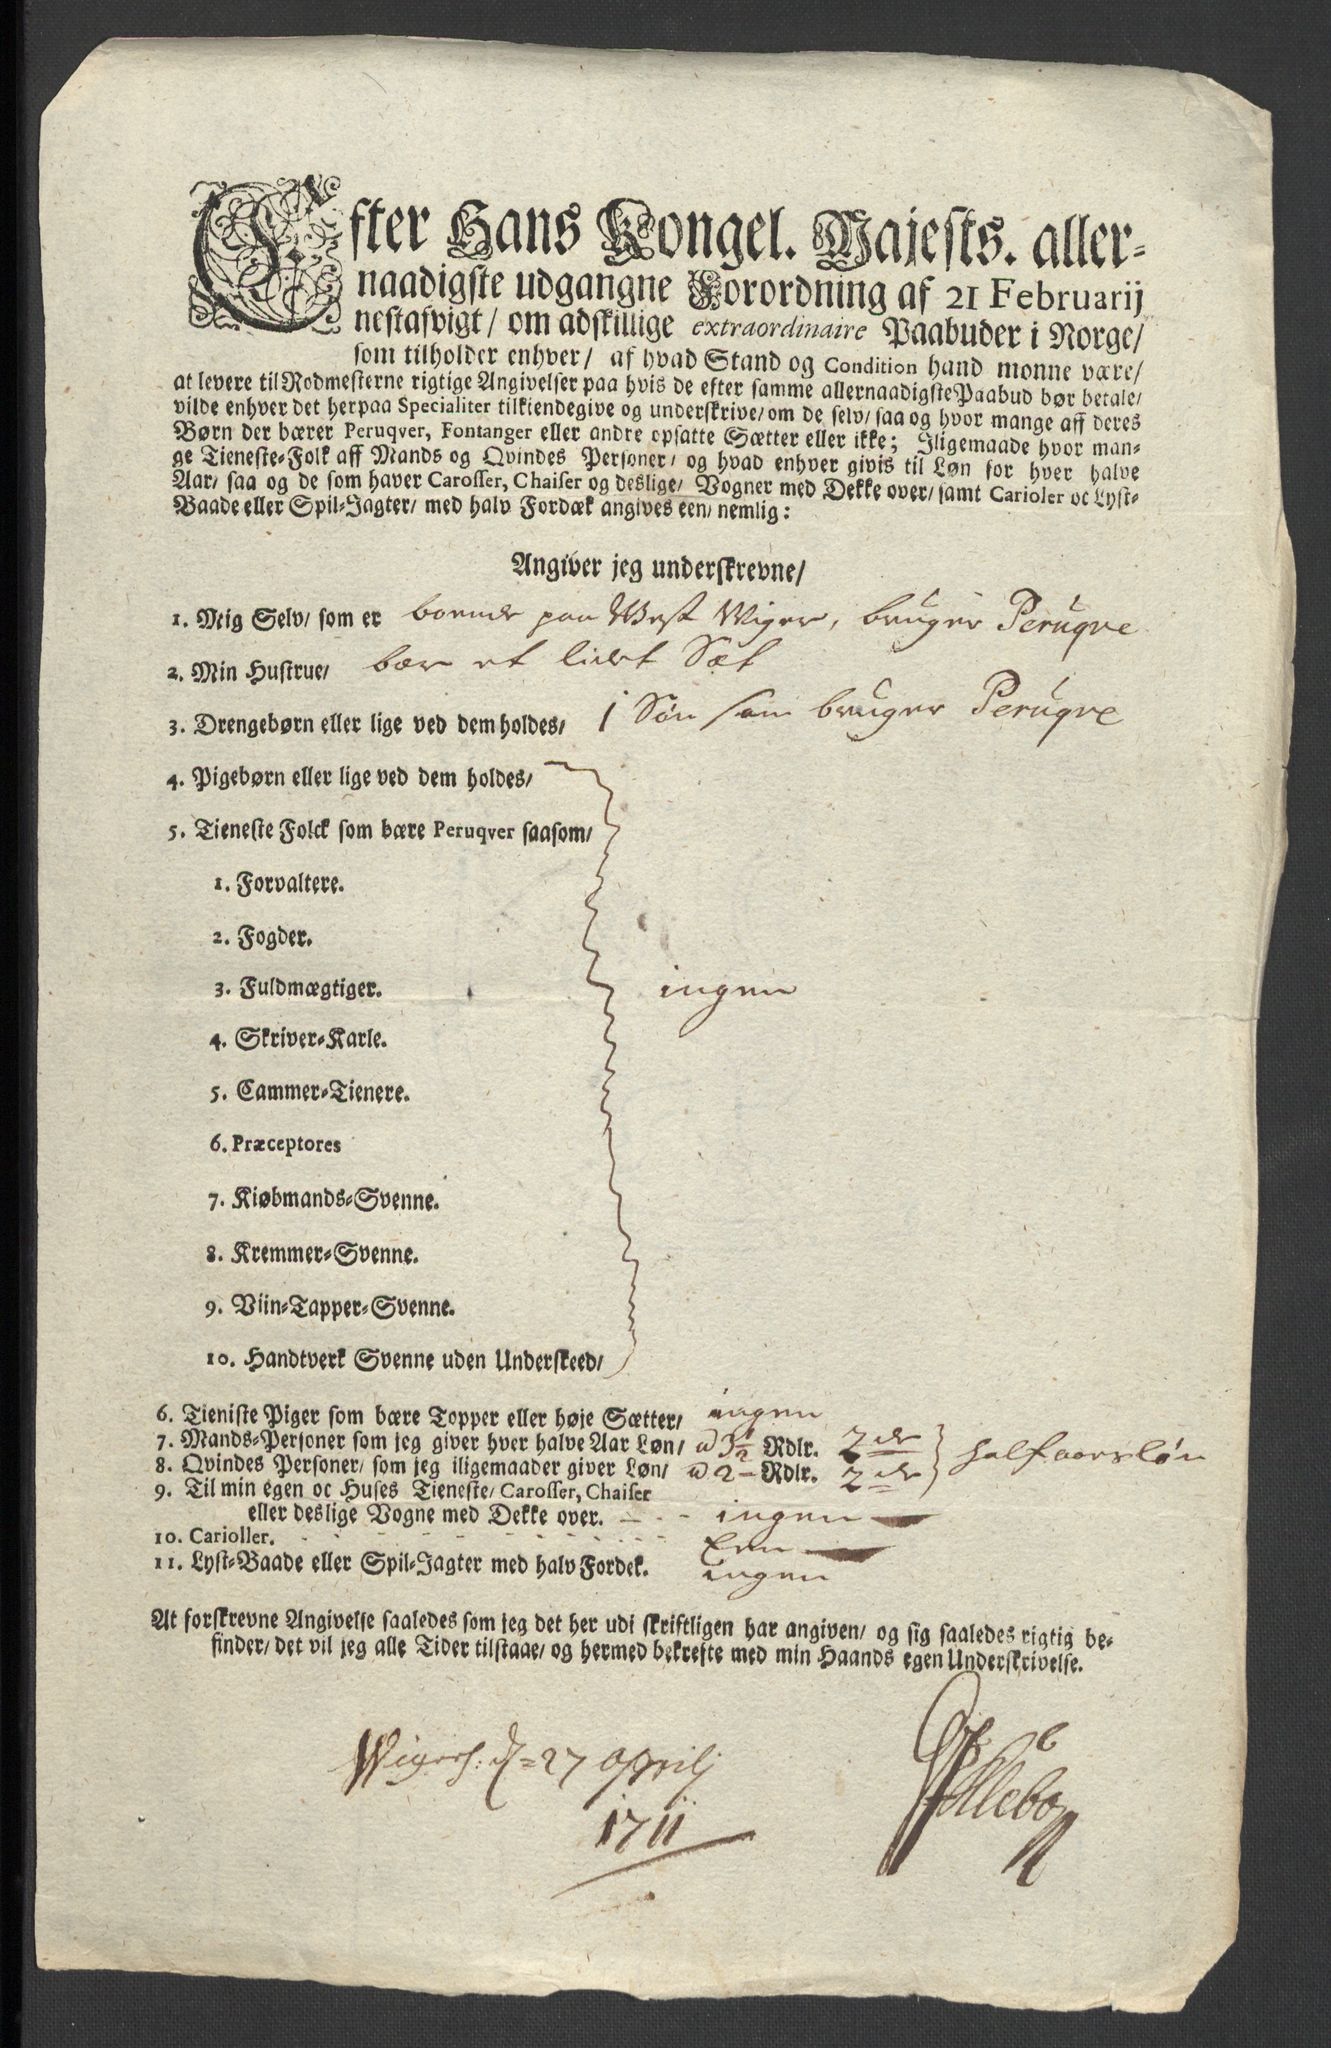 Efter Hans Kongel. Majests. aller-
naadigste udgangne Forordning af 21 Februarij
nestafvigt/ om adskillige extraordinaire Paabuder i Norge/
som tilholder enhver/ af hvad Stand og Condition hand monne være/
at levere til Rodmesterne rigtige Angivelser paa hvis de efter samme allernaadigste Paabud bør betale/
vilde enhver det herpaa Specialiter tilkiendegive og underskrive/ om de selv/ saa og hvor mange aff deres
Børn der bærer Peruqver, Fontanger eller andre opsatte Sætter eller ikke; Iligemaade hvor man-
ge Tieneste-Folk aff Mands og Qvindes Personer/ og hvad enhver givis til Løn for hver halve
Aar/ saa og de som haver Carosser, Chaiser og deslige/ Vogner med Dekke over/ samt Carioler oc Lyst-
Baade eller Spil-Jagter/ med halv Fordæk angives een/ nemlig:
Angiver jeg underskrevne/
1. Mig Selv/ som er boende paa West Wiger, bruger Peruqve
2. Min Hustrue/ bær et lidet Sæt
3. Drengebørn eller lige ved dem holdes/ 1 Søn som bruger Peruqve
4. Pigebørn eller lige ved dem holdes/
5. Tieneste Folck som bære Peruqver saasom/
1. Forvaltere.
2. Fogder.
3. Fuldmægtiger. ingen
4. Skriver-Karle.
5. Cammer-Tienere.
6. Præceptores
7. Kiøbmands-Svenne.
8. Kremmer-Svenne.
9. Viin-Tapper-Svenne.
10. Handtverk Svenne uden Underskeed/
6. Tieniste Piger som bære Topper eller høje Sætter/ ingen
7. Mands-Personer som jeg giver hver halve Aar Løn/ a 3½ Rdlr. 2de } halfaars løn
8. Qvindes Personer/ som jeg iligemaader giver Løn/ a 2 - Rdlr. 2de
9. Til min egen oc Huses Tieneste/ Carosser, Chaiser
eller deslige Vogne med Dekke over. - - - ingen
10. Carioller. Een
11. Lyst-Baade eller Spil-Jagter med halv Fordek. ingen
At forskrevne Angivelse saaledes som jeg det her udi skriftligen har angiven/ og sig saaledes rigtig be-
finder/ det vil jeg alle Tider tilstaae/ og hermed bekrefte med min Haands egen Underskrivelse.
27 Aprilj
1711